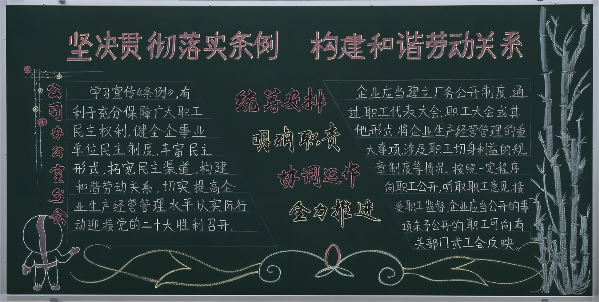 坚决贯彻落实条例 构建和谐劳动关系
学习宣传《条例》,有
利于充分保障广大职工
民主权利,健全企事业
单位民主制度,丰富民主
形式,拓宽民主渠道,构建
和谐劳动关系,切实提高企
业生产经营管理水平以实际行
动迎接党的二十大胜利召开.
统筹安排
明确职责
协调运作
全力推进
企业应当建立厂务公开制度,通
过职工代表大会,职工大会或其
他形式,将企业生产经营管理的重
大事项,涉及职工切身利益的规
章制度等情况,按照一定程序
向职工公开,听取职工意见,接
受职工监督.企业应当公开的事
项未予公开的,职工可向有
关部门或工会反映.